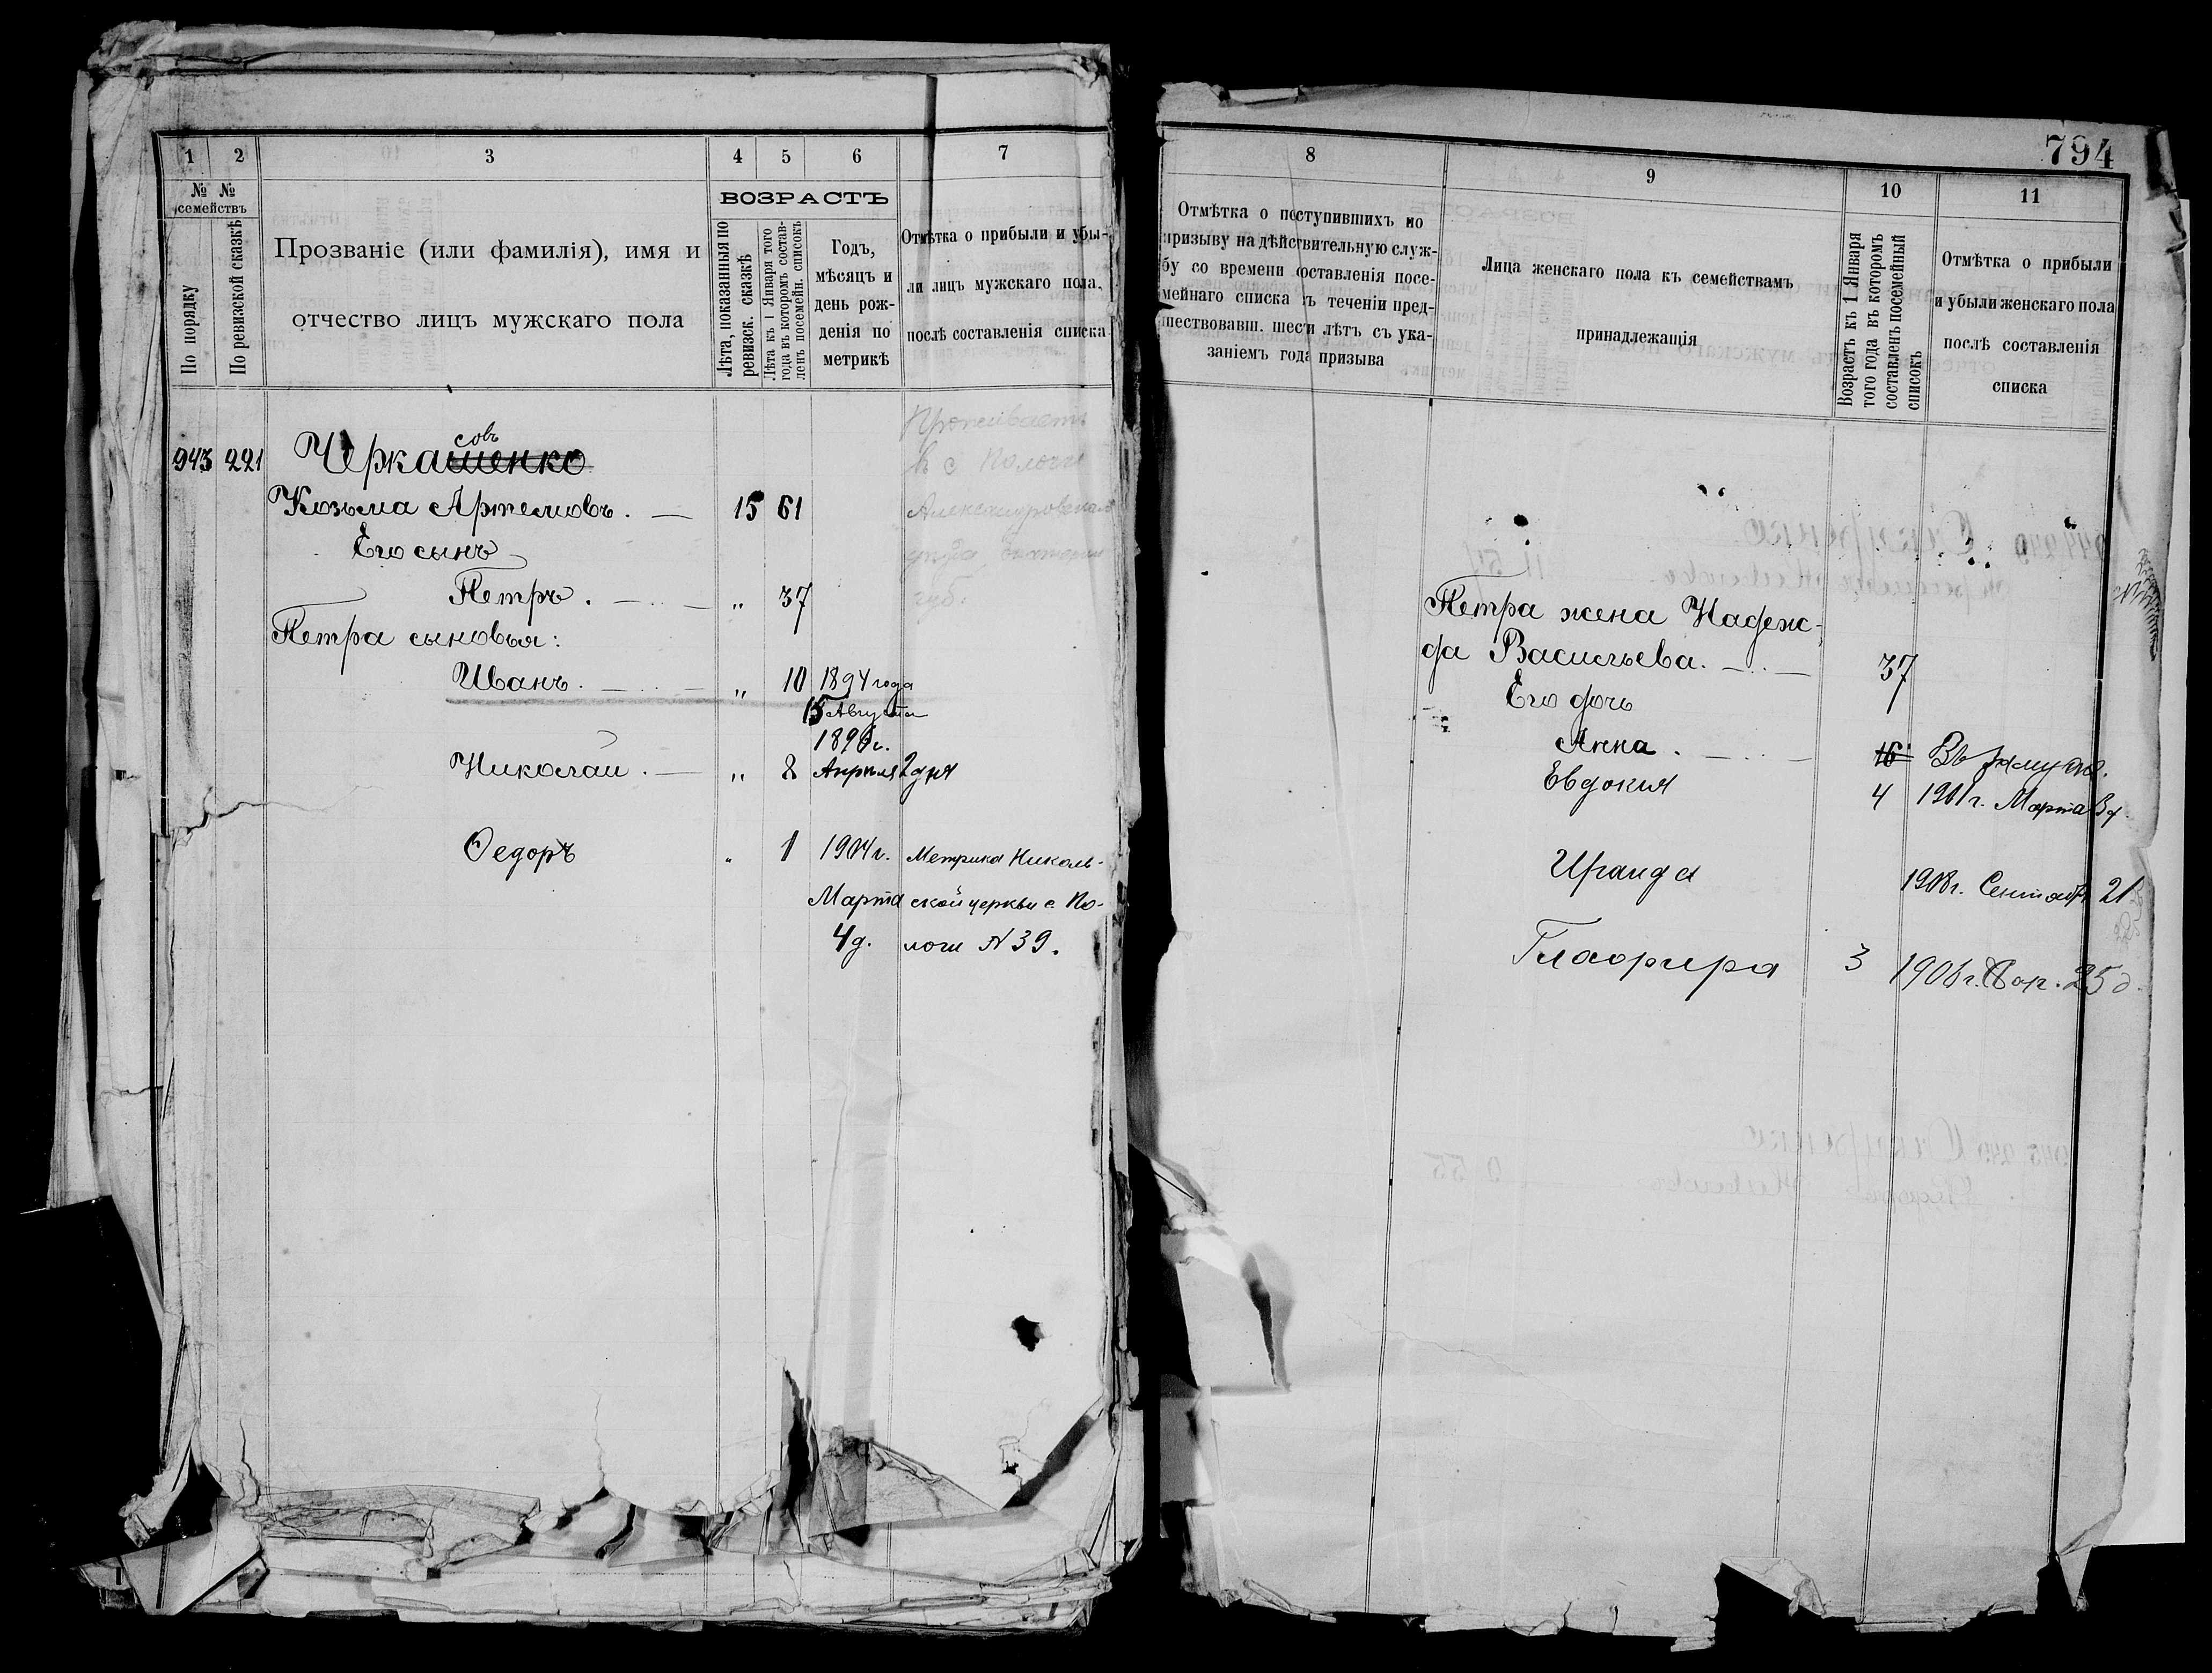 1
2
3
4
5
6
7
№ №
семействъ
По порядку
По ревизской сказкѣ
Прозваніе (или фамилія), имя и
отчество лицъ мужскаго пола
ВОЗРАСТЪ
Лѣта, показанныя по
ревизск. сказкѣ
Лѣта къ 1 Января того
года въ которомъ состав-
ленъ посемейн. списокъ
Годъ,
мѣсяцъ и
день рож-
денія по
метрикѣ
Отмѣтка о прибыли и убы-
ли лицъ мужскаго пола,
послѣ составленія списка
совъ
943 221 Черкашенко
Козьма Артемовъ. — 15 61
Его сынъ
Петръ. — „ 37
Петра сыновья:
Иванъ. — „ 10 1894 года
15 Августа
1896 г.
Николай. — „ 8 Апреля 2 дня
Ѳедоръ „ 1 1904 г.
Марта
4 д.
Проживаетъ
в с Пологи
Александровскаго
уезда Екатерин
губ.
Метрика Николь-
ской церкви с. По-
логи № 39.
794
8
9
10
11
Отмѣтка о поступившихъ по
призыву на дѣйствительную служ-
бу со времени составленія посе-
мейнаго списка въ теченіи пред-
шествовавш. шести лѣтъ съ ука-
заніемъ года призыва
Лица женскаго пола къ семействамъ
принадлежащія
Возрастъ къ 1 Января
того года въ которомъ
составленъ посемейный
списокъ
Отмѣтка о прибыли
и убыли женскаго пола
послѣ составленія
списка
Петра жена Надеж-
да Васильева. — 37
Его дочь
Анна. — 16 Въ замуж.
Евдокия 4 1901 г. Марта 3 д.
Ираида 1908 г. Сентябр 21
Глафира 3 1906 г. 25 д.